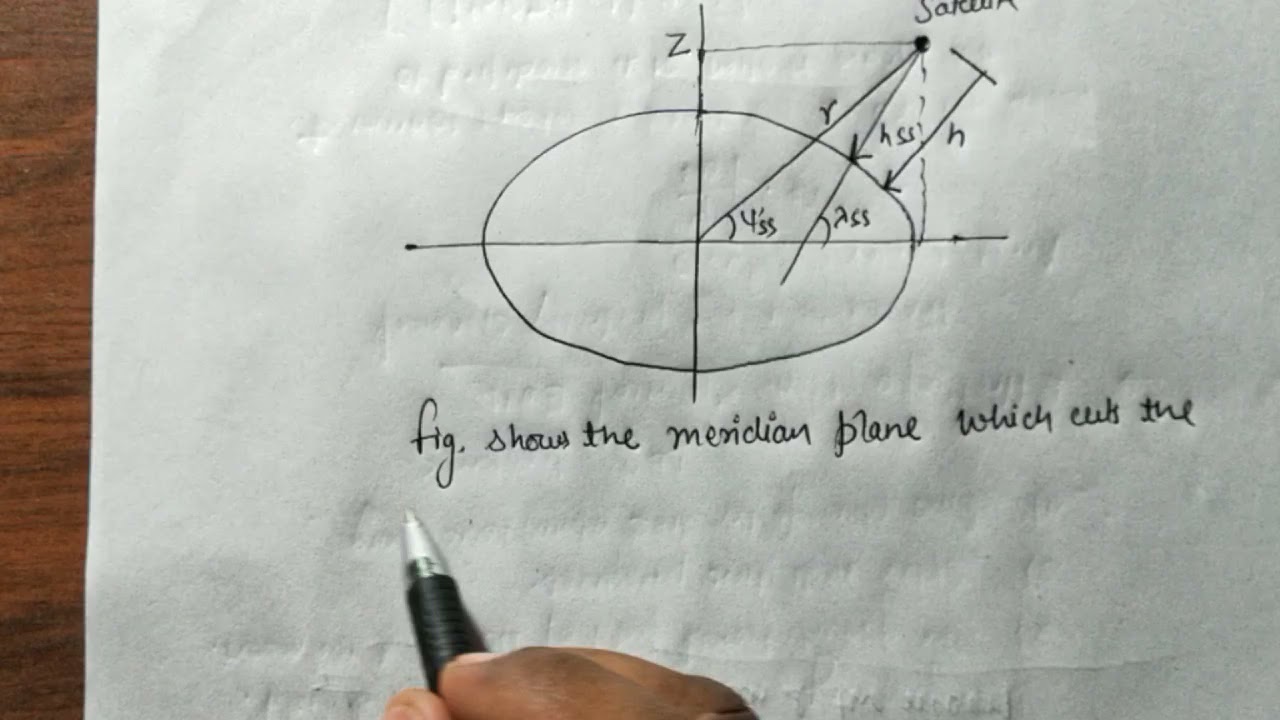 Satellite
Z
r
hss
h
Ψ'ss
λss
fig. shows the meridian plane which cuts the